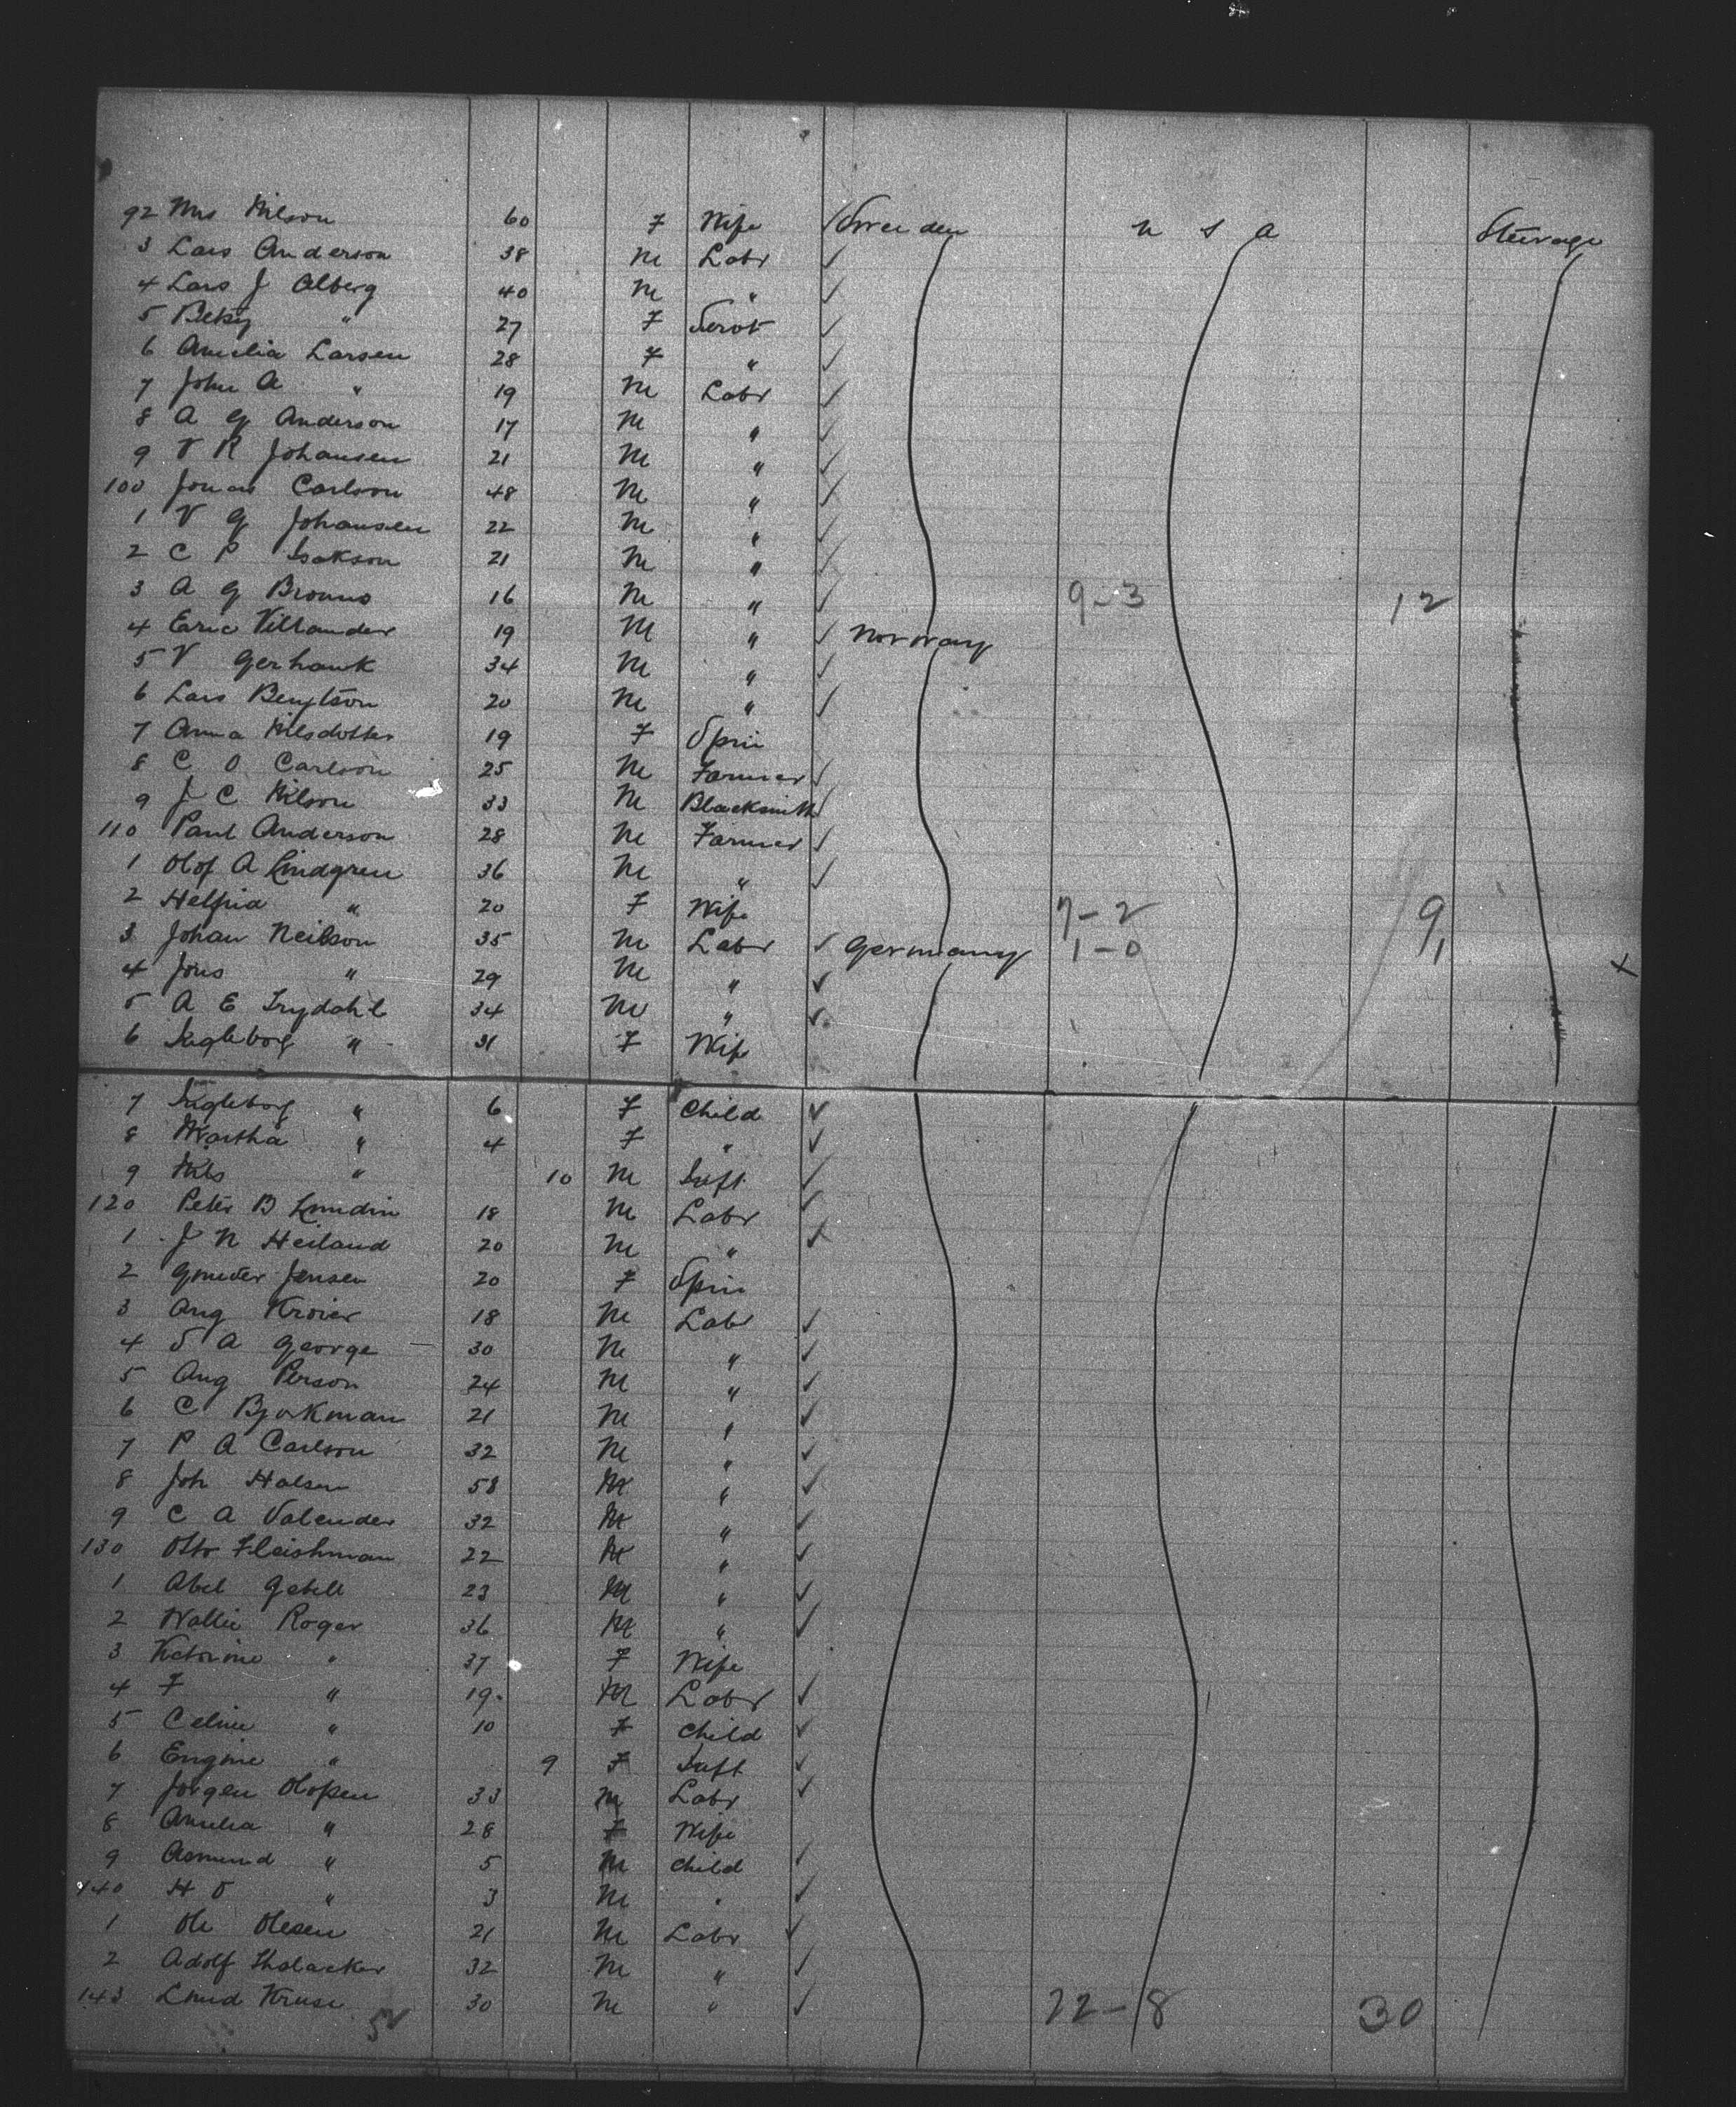 92 Mrs Nilson 60 F Wife ✓ Sweeden U S A Steerage
3 Lars Anderson 38 M Labr ✓
4 Lars J Alberg 40 M " ✓
5 Beky " 27 F Servt ✓
6 Amelia Larsen 28 F " ✓
7 John A " 19 M Labr ✓
8 A G Anderson 17 M " ✓
9 V R Johansen 21 M " ✓
100 Jonas Carlson 48 M " ✓
1 V G Johansen 22 M " ✓
2 C P Isakson 21 M " ✓
3 A G Bromns 16 M " ✓ 9-3 12
4 Eric Villander 19 M " ✓ Norway
5 V Gerhawk 34 M " ✓
6 Lars Bengtson 20 M " ✓
7 Anna Nilsdotter 19 F Spin
8 C O Carlson 25 M Farmer ✓
9 J C Nilson 33 M Blacksmith ✓
110 Paul Anderson 28 M Farmer ✓
1 Olof A Lindgren 36 M " ✓
2 " 20 F Wife 7-2 9
3 Johan Neilson 35 M Labr ✓ Germany 1-0 1 x
4 Jons " 29 M " ✓
5 A E Trydahl 34 M " ✓
6 Ingleborg " 31 F Wife
7 Ingleborg " 6 F Child ✓
8 Martha " 4 F " ✓
9 Nils " 10 M Inft ✓
120 Peter B Lundin 18 M Labr ✓
1 J N Heiland 20 M " ✓
2 Jensen 20 F Spin
3 Aug Kroier 18 M Labr ✓
4 S A George 30 M " ✓
5 Aug Person 24 M " ✓
6 C Bjorkman 21 M " ✓
7 P A Carlson 32 M " ✓
8 Joh Halsen 58 M " ✓
9 C A Valender 32 M " ✓
130 Otto Fleishman 22 M " ✓
1 Abel Gebell 23 M " ✓
2 Wallie Roger 36 M " ✓
3 " 37 F Wife
4 F " 19 M Labr ✓
5 Celine " 10 F Child ✓
6 Engine " 9 F Inft ✓
7 Jorgen Olofsen 33 M Labr ✓
8 Amelia " 28 F Wife
9 Asmund " 5 M Child ✓
140 H O " 3 M " ✓
1 Ole Olesen 21 M Labr ✓
2 Adolf Tholacker 32 M " ✓
143 Knud Kruse 30 M " ✓ 22-8 30
52